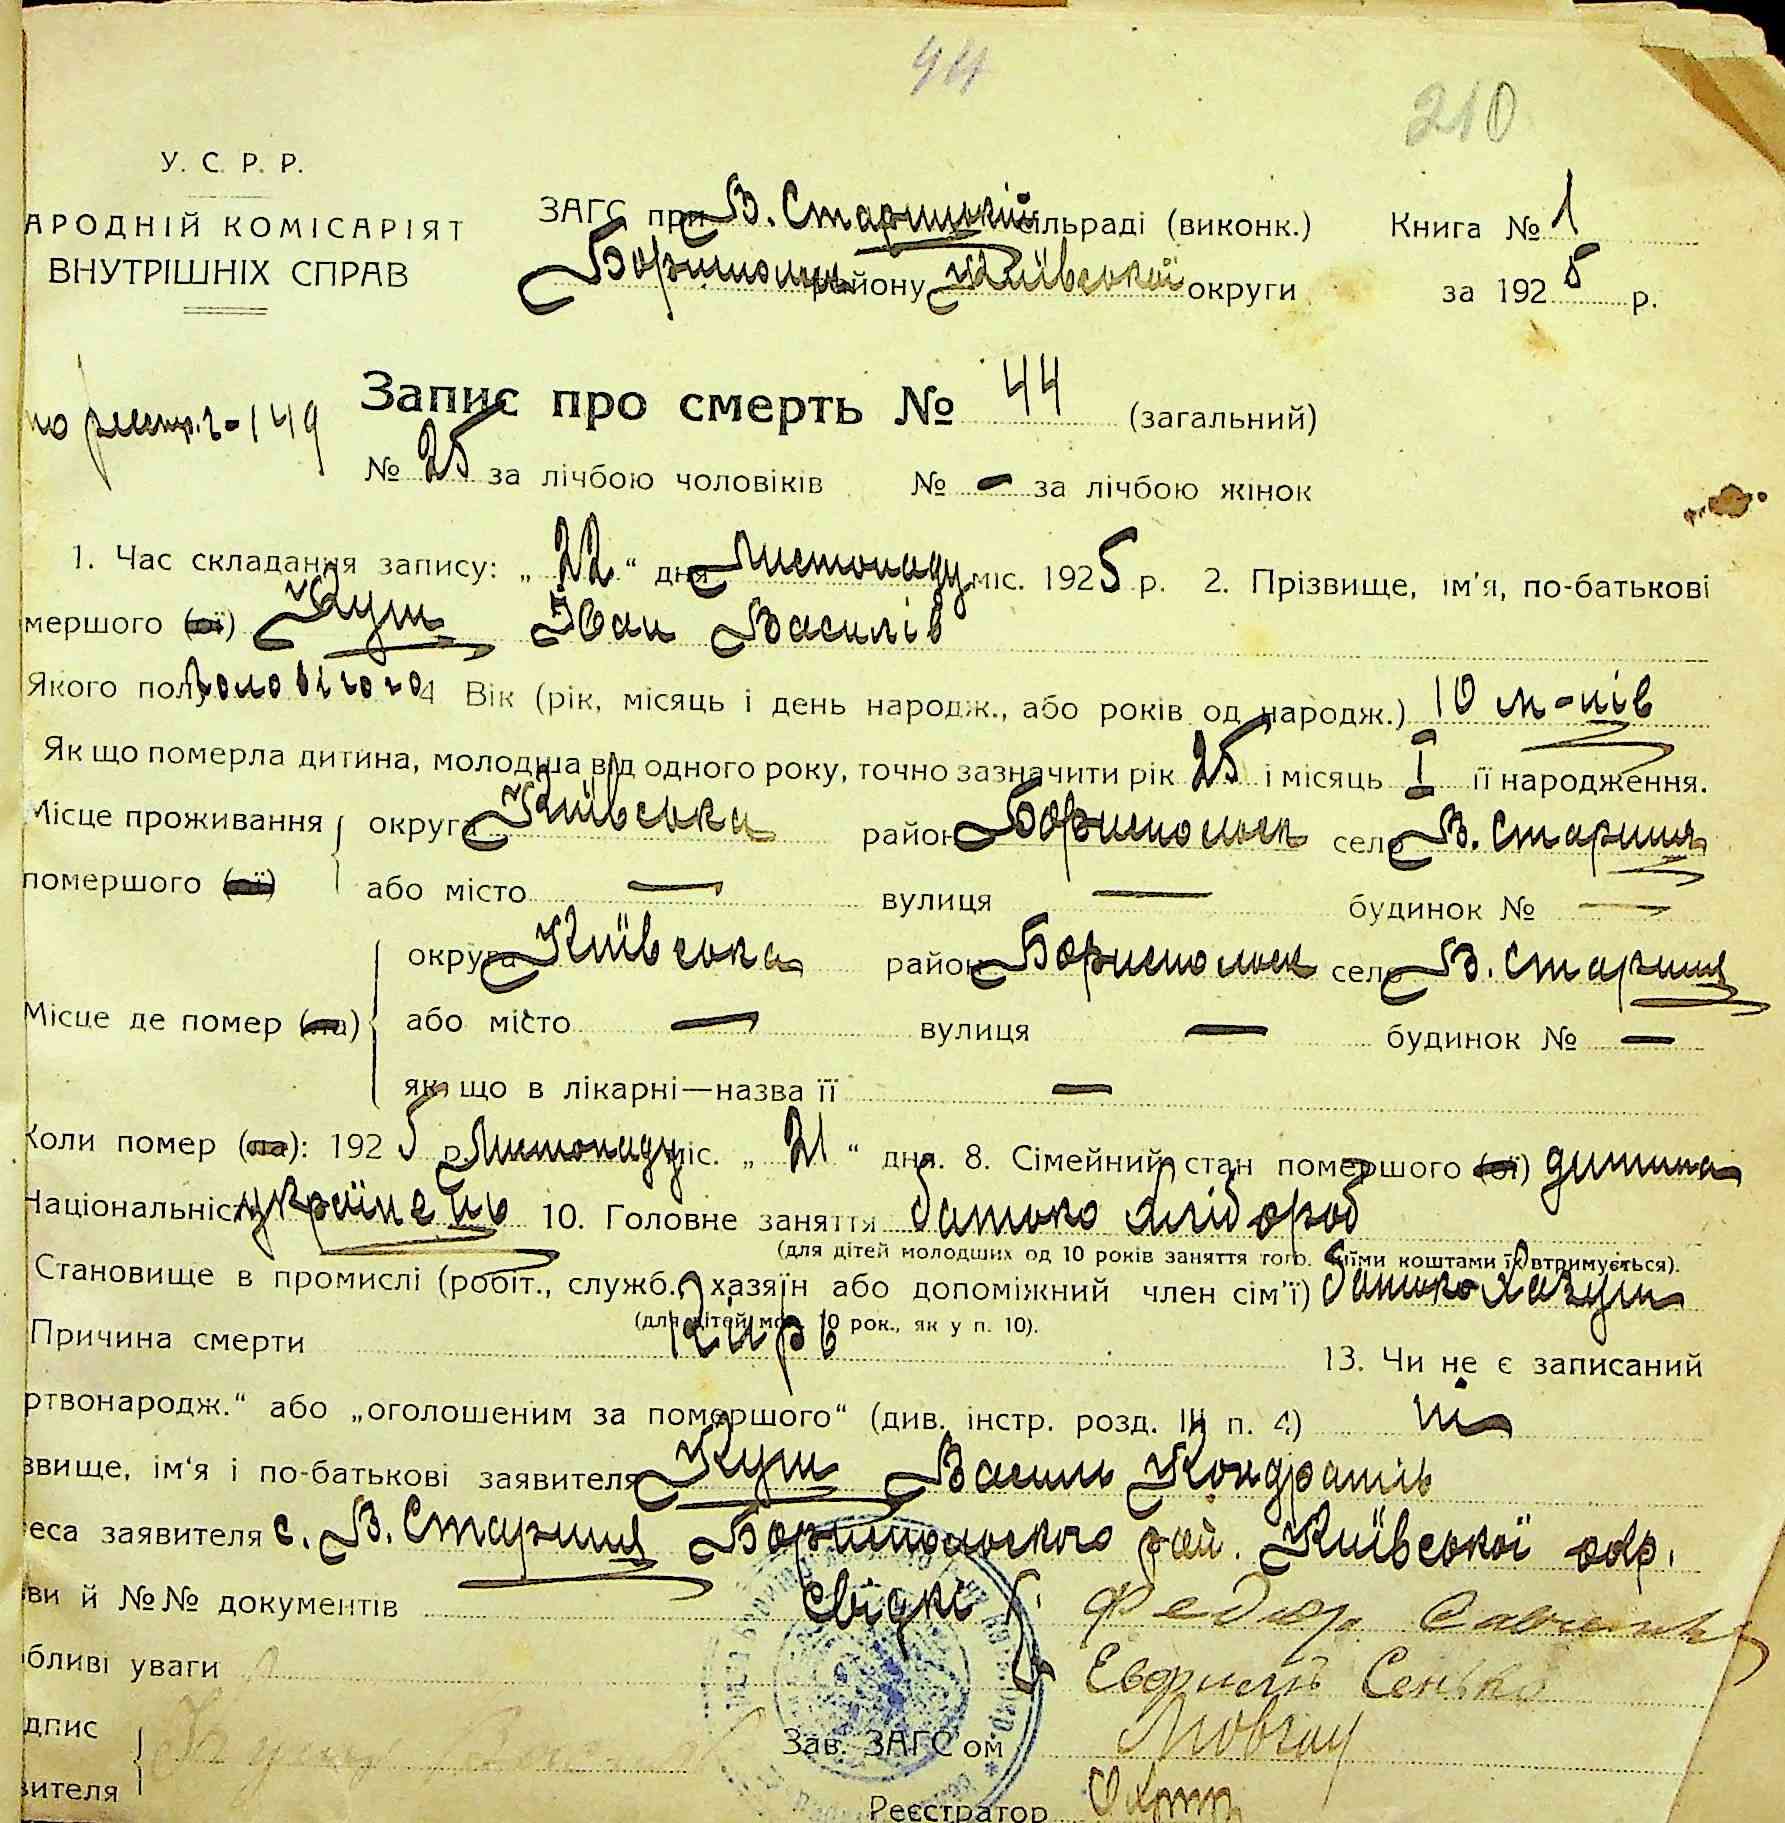 44
210
У. С. Р. Р.
АРОДНІЙ КОМІСАРІЯТ
ВНУТРІШНІХ СПРАВ
ЗАГС при В. Старицькій сільраді (виконк.) Книга № 1
району Київської округи за 1925 р.
Запис про смерть № 44 (загальний)
149
№ 25 за лічбою чоловіків № - за лічбою жінок
1. Час складання запису: „22“ дня Листопаду міс. 1925 р. 2. Прізвище, ім'я, по-батькові
мершого (ої) Кущ Іван Василів
Якого полу 4 Вік (рік, місяць і день народж., або років од народж.) 10 м-ців
Як що померла дитина, молодша від одного року, точно зазначити рік 25 і місяць I її народження.
Місце проживання округа Київська район Бориспольськ село В. Стариця
помершого (ої) або місто — вулиця — будинок № —
округа Київська район Бориспольск село В. Стариця
Місце де помер (ла) або місто — вулиця — будинок № —
як що в лікарні—назва її —
Коли помер (ла): 1925 р. Листопаду міс. „21“ дня. 8. Сімейний стан помершого (ої) дитина
Національність українець 10. Головне заняття батько хлібороб
(для дітей молодших од 10 років заняття того, чиїми коштами їх втримується).
Становище в промислі (робіт., служб., хазяїн або допоміжний член сім'ї) батько
(для дітей мол. 10 рок., як у п. 10).
Причина смерти Кирь 13. Чи не є записаний
ртвонародж.“ або „оголошеним за помершого“ (див. інстр. розд. III п. 4) ні
звище, ім'я і по-батькові заявителя Кущ Василь Кондратів
еса заявителя с. В. Стариця Бориспольского рай. Київської окр.
ви й №№ документів свідкі Федор
бливі уваги
дпис Зав. ЗАГС'ом
вителя
Реєстратор